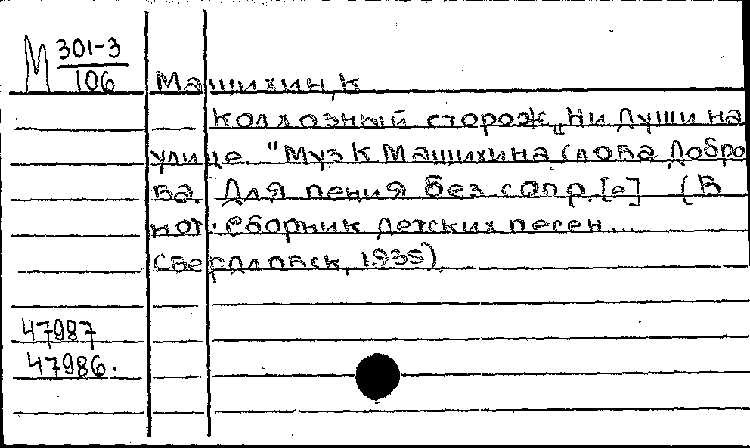 М 301-3
106
Машихин, К
Колхозный сторож „Ни души на
улице. "Муз К Машихина слова Добро
ва. Для пения без сопр. [е] (В
нот. Сборник детских песен...
Свердловск, 1935)
47987
47986.